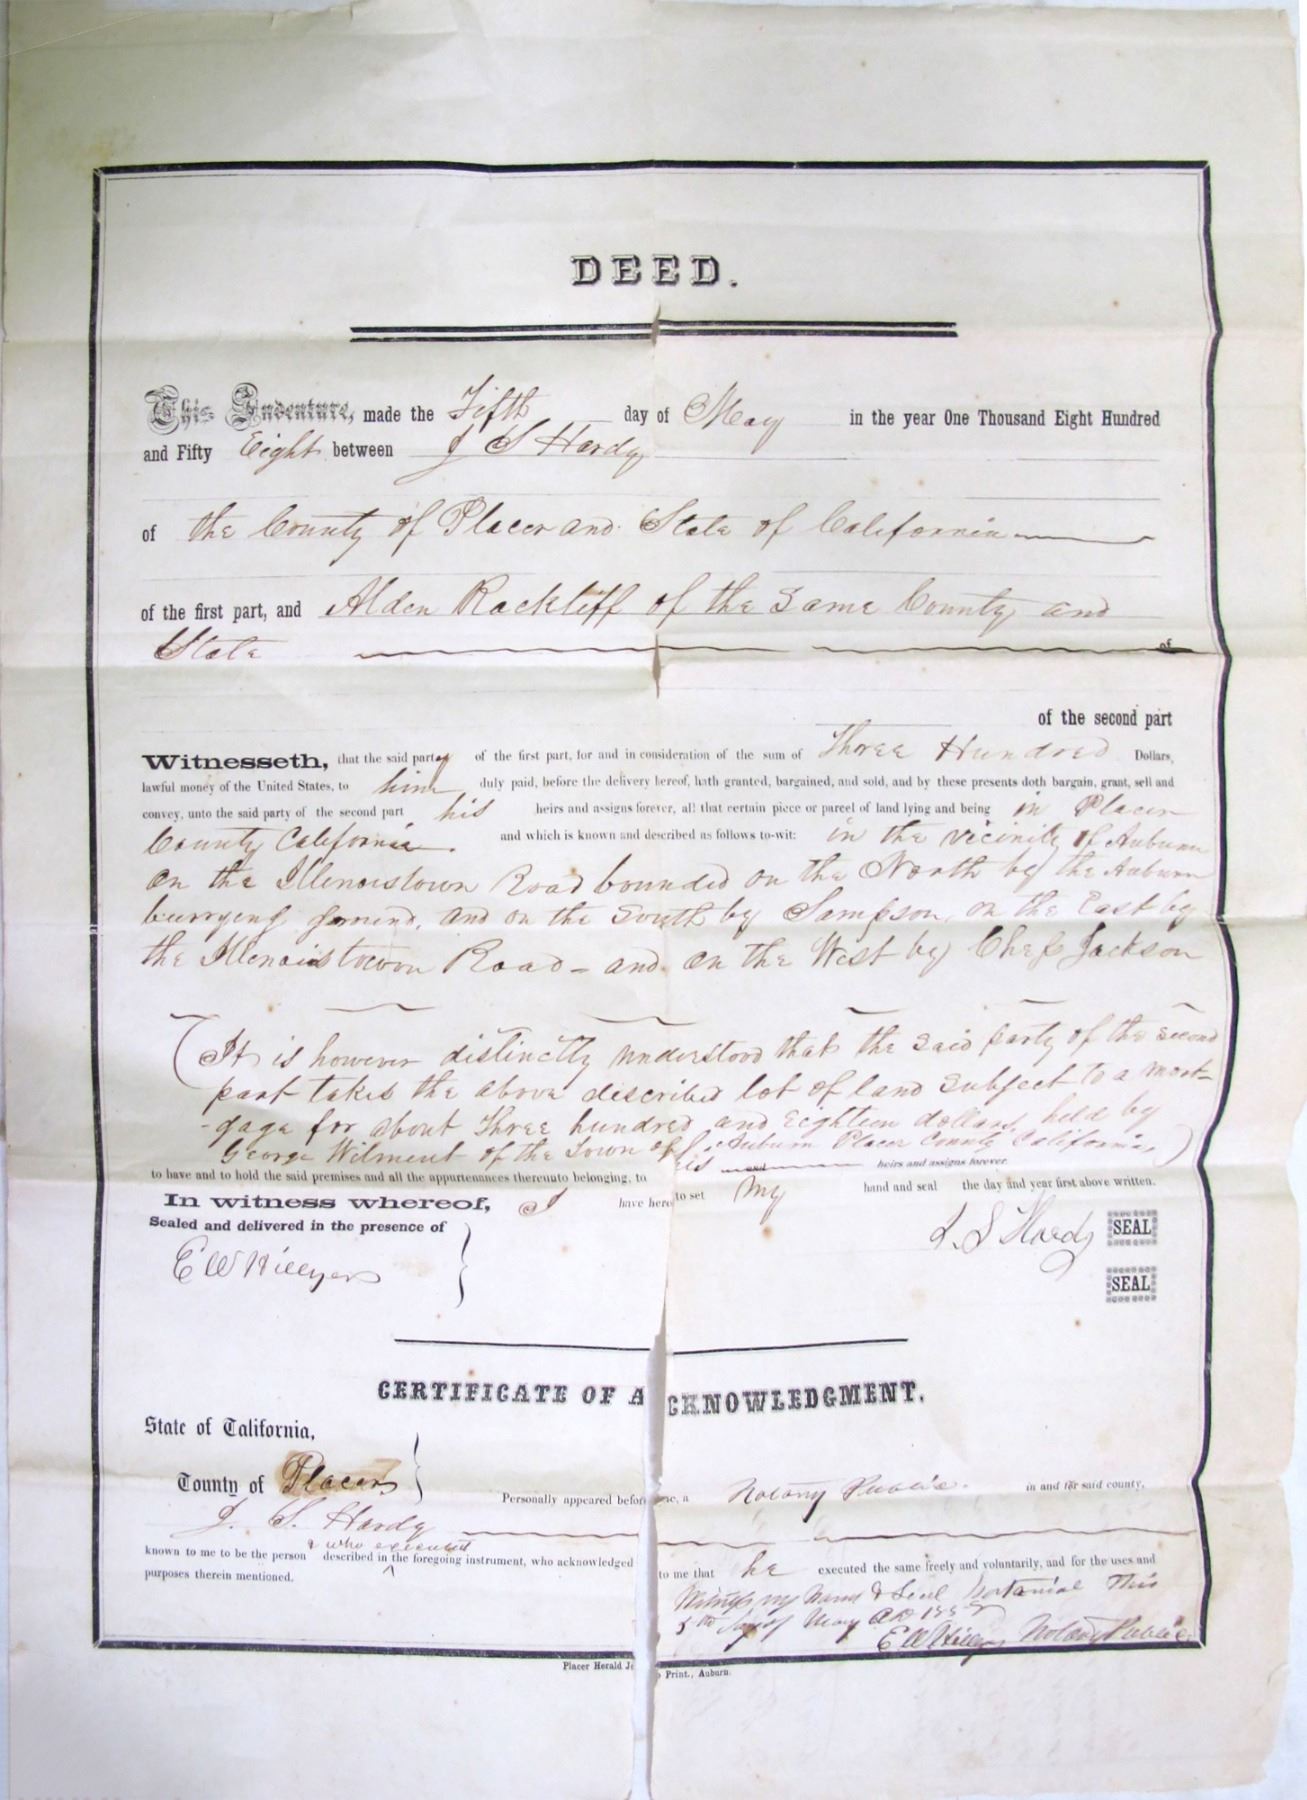 DEED.
This Indenture, made the Fifth day of May in the year One Thousand Eight Hundred
and Fifty Eight between J S Hardy
of the County of Placer and State of California
of the first part, and Alden Rackliff of the same County and
State of
of the second part
Witnesseth, that the said party of the first part, for and in consideration of the sum of Three Hundred Dollars,
lawful money of the United States, to him duly paid, before the delivery hereof, hath granted, bargained, and sold, and by these presents doth bargain, grant, sell and
convey, unto the said party of the second part his heirs and assigns forever, all that certain piece or parcel of land lying and being in Placer
County California. and which is known and described as follows to-wit: in the vicinity of Auburn
on the Illenoistown Road bounded on the North by the Auburn
burrying ground, and on the South by Sampson, on the East by
the Illenoistown Road - and on the West by Jackson
(It is however distinctly understood that the said party of the second
part takes the above described lot of land subject to a mort-
-gage for about Three hundred and Eighteen dollars, held by
George Wilment of the Town of Auburn Placer County California)
to have and to hold the said premises and all the appurtenances thereunto belonging, to his heirs and assigns forever.
In witness whereof, I have here to set my hand and seal the day and year first above written.
Sealed and delivered in the presence of
E W Hillyer
J. S Hardy SEAL
SEAL
CERTIFICATE OF ACKNOWLEDGMENT.
State of California,
County of Placer
Personally appeared before me, a Notary Public. in and for said county,
J. S. Hardy
& who executed
known to me to be the person described in the foregoing instrument, who acknowledged to me that he executed the same freely and voluntarily, and for the uses and
purposes therein mentioned.
Witness my hand & Seal Notarial This
5th day of May AD 1858
E W Hillyer Notary Public
Placer Herald Jo Print., Auburn.